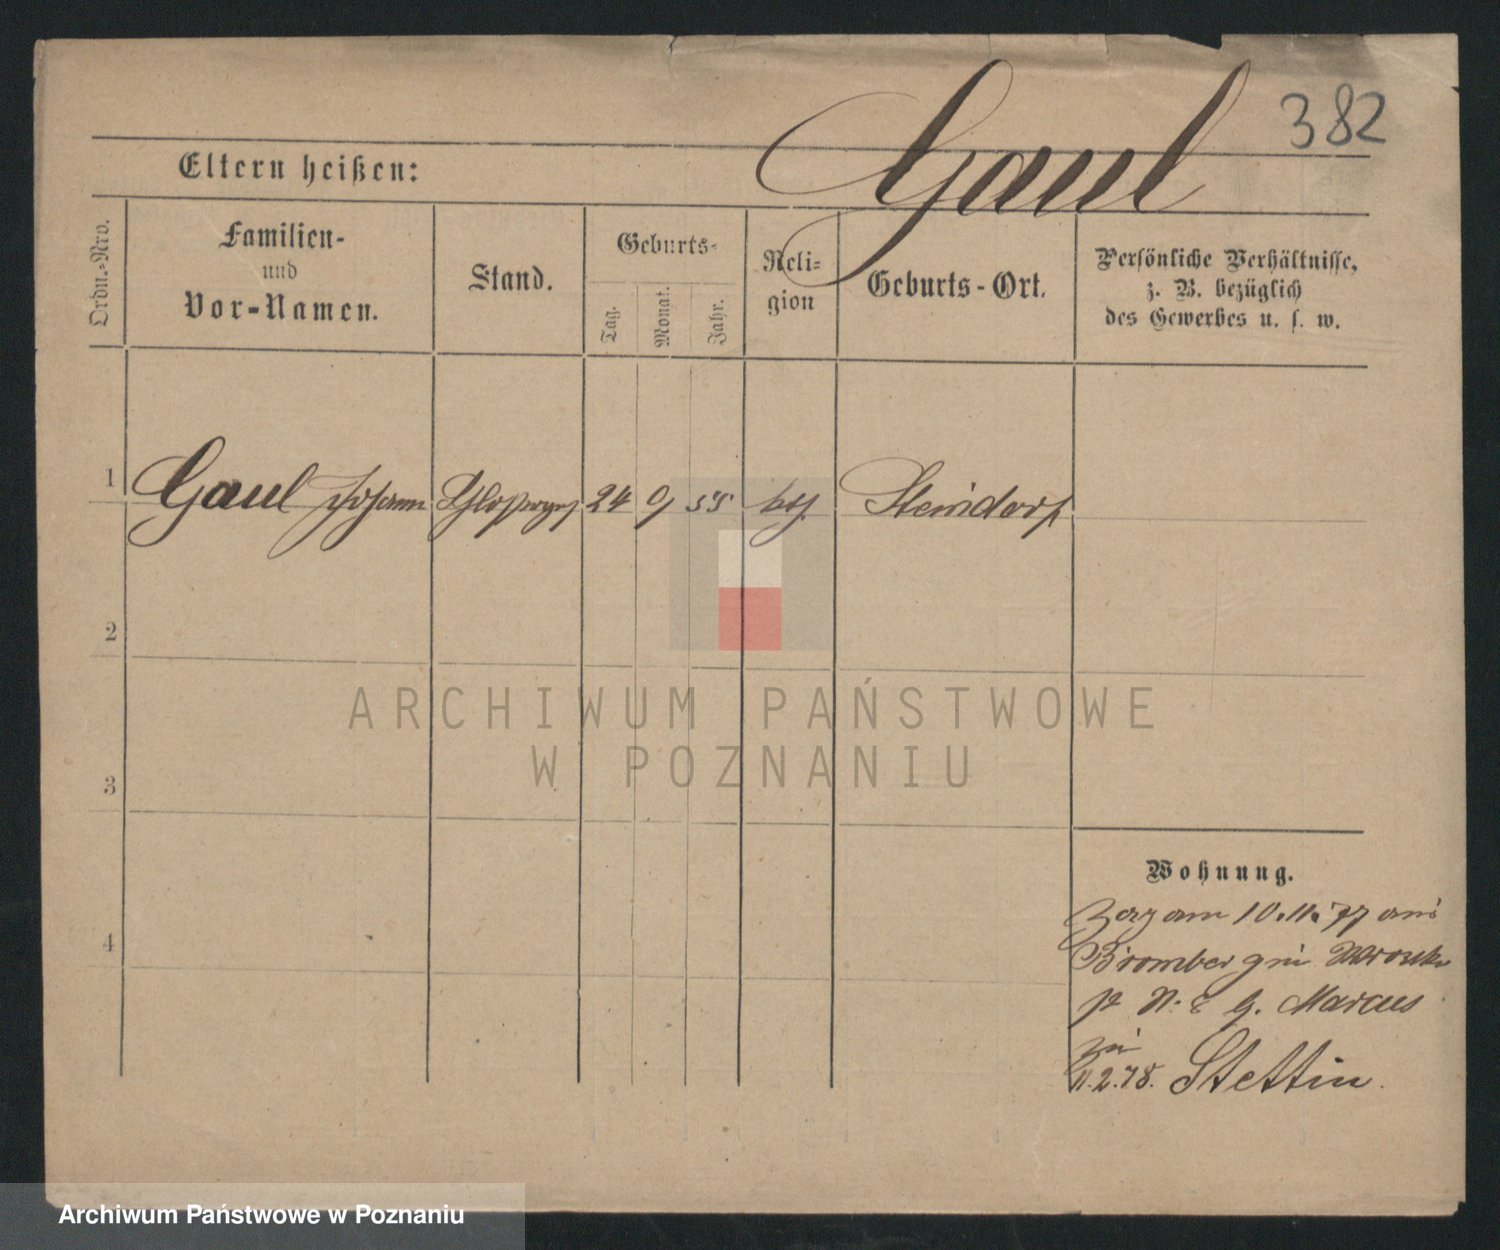 Gaul
382
Eltern heißen:
Ordn.-Nro.
Familien-
und
Vor-Namen.
Stand.
Geburts-
Tag.
Monat.
Jahr.
Reli-
gion
Geburts-Ort.
Persönliche Verhältnisse,
z. B. bezüglich
des Gewerbes u. s. w.
1 Gaul Johann Schlosserges 24 9 55 kth. Steindorf
2
3
4
Wohnung.
Zozg am 10.11.77 aus
Bromberg
N. & G. Marcus
zu
11.2.78. Stettin.
ARCHIWUM PAŃSTWOWE
W POZNANIU
Archiwum Państwowe w Poznaniu